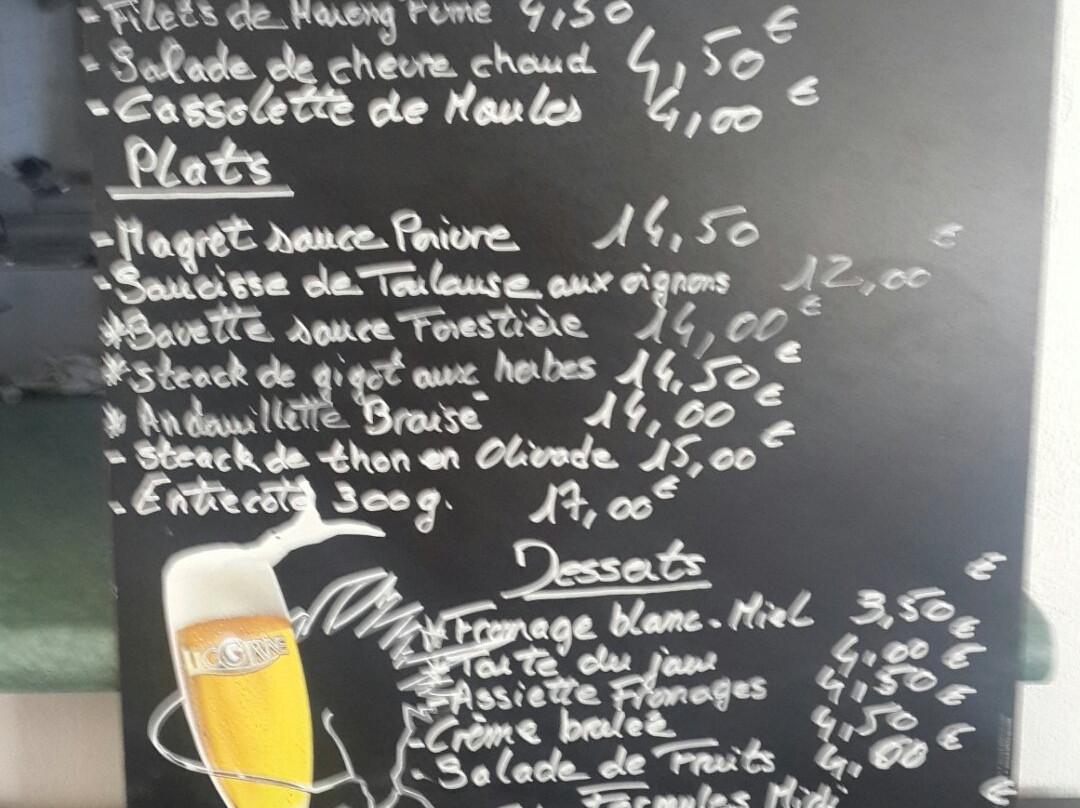 - Filets de Hareng Fumé 4,50 €
- Salade de chèvre chaud 4,50 €
- Cassolette de Moules 4,00
Plats
- Magret sauce Poivre 14,50 €
- Saucisse de Toulouse aux oignons 12,00 €
* Bavette sauce Forestière 14,00 €
* Steack de gigot aux herbes 14,50 €
* Andouillette Braisé 14,00 €
- Steack de thon en Olivade 15,00
- Entrecôte 300g. 17,00 €
Desserts €
* Fromage blanc - Miel 3,50 €
* Tarte du jour 4,00 €
- Assiette Fromages 4,50 €
- Crème brulée 4,50 €
- Salade de Fruits 4,00
Formules Midi €
LICORNE